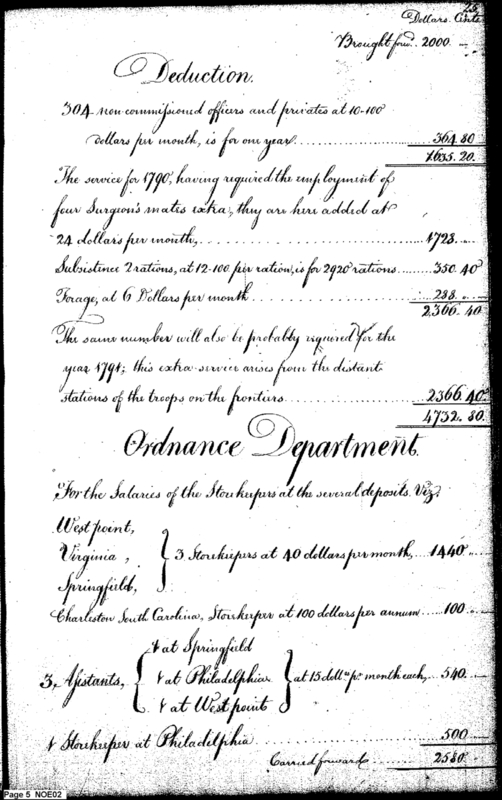 25
Dollars. Cents
Brought forwd. 2000. —
Deduction.
304 non commissioned officers and privates at 10-100
dollars per month, is for one year 364.80
1635.20.
The service for 1790, having required the employment of
four Surgeon's mates extra, they are here added at
24 dollars per month, 1728. —
Subsistence 2 rations, at 12-100 per ration, is for 2920 rations 350.40
Forage, at 6 Dollars per month 288. —
2366.40
The same number will also be probably required for the
year 1791; this extra service arises from the distant
stations of the troops on the frontiers 2366.40
4732.80.
Ordnance Department.
For the Salaries of the Storekeepers at the several deposits. Viz.
West point,
Virginia, } 3 Storekeepers at 40 dollars per month, 1440
Springfield,
Charleston South Carolina, Storekeeper at 100 dollars per annum 100
1 at Springfield
3, Assistants, { 1 at Philadelphia } at 15 dolls. pr. month each, 540.
1 at West point
1 Storekeeper at Philadelphia 500
Carried forward 2580.
Page 5 NOE02